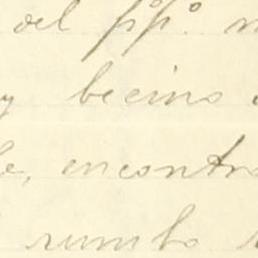 del ppº.
y becino
encontra
rumbo